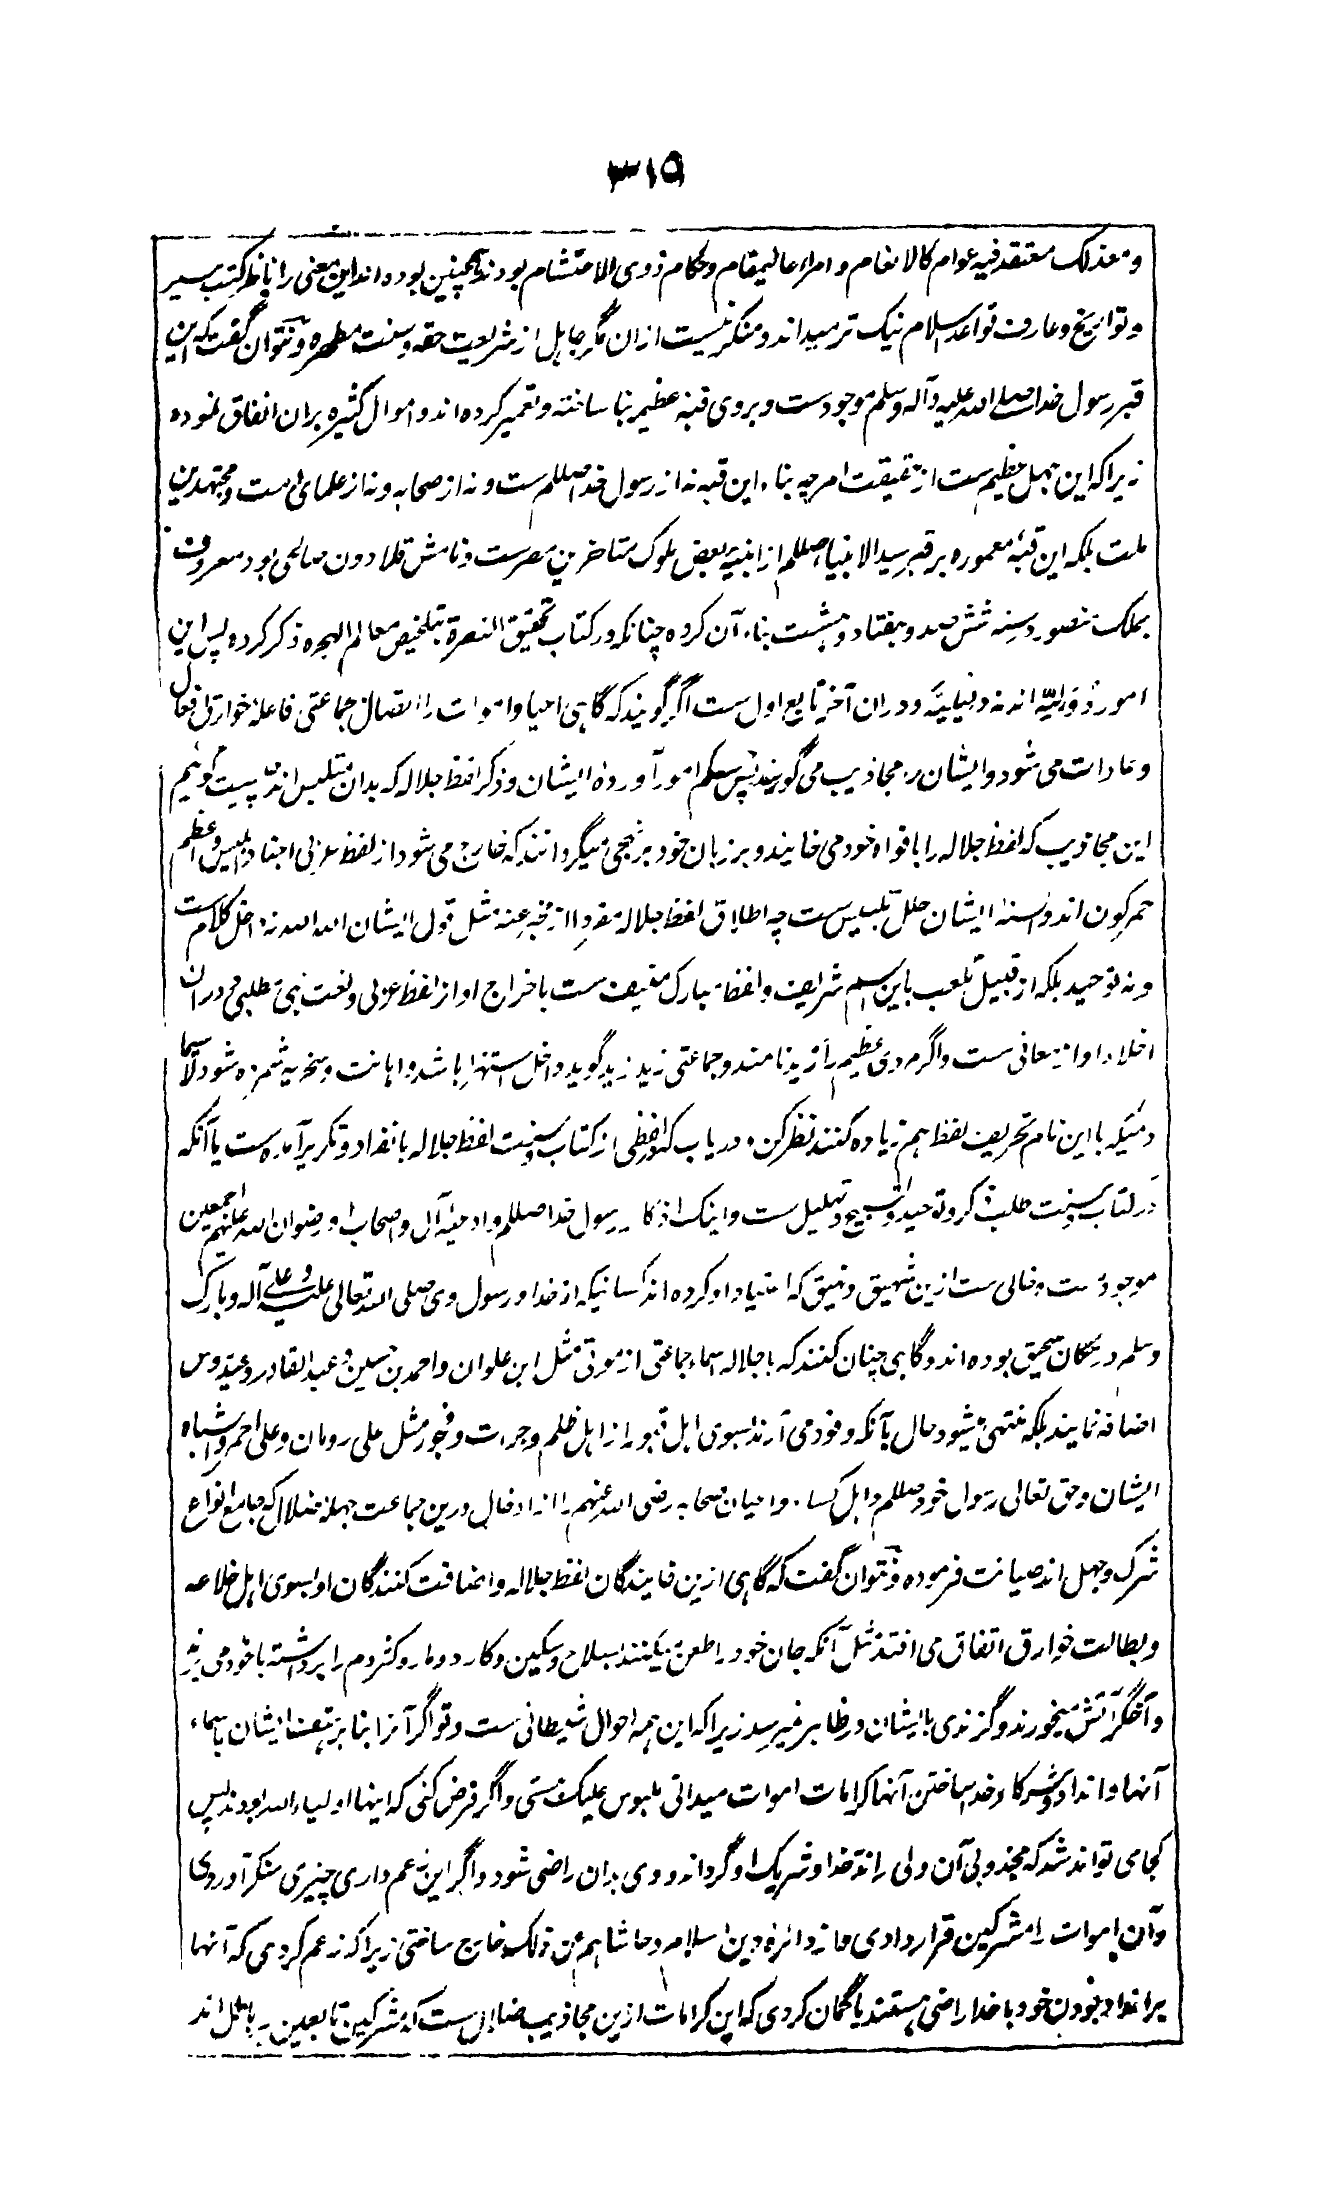 ۳۱۵
ومعذلک معتقد فیه عوام کالانعام و امراء عالیمقام و حکام ذوی الاحتشام بودند همچنین بوده اند این معنی را ناظر کتب سیر
و تواریخ و عارف قواعد اسلام نیک تر میداند و منکر نیست ازان مگر جاہل از شریعت حقه و سنت مطهره و نتوان گفت که این
قبر رسول خدا صلی الله علیه و آله وسلم موجودست و بروی قبه عظیم بنا ساخته و تعمیر کرده اند و اموال کثیره بران انفاق نموده
زیرا که این جہل عظیم ست از حقیقت امر چه بناء این قبه نه از رسول خدا صللم ست و نه از صحابه و نه از علمای امت و مجتهدین
ملت بلکه این قبهٔ معموره بر قبر سید الانبیا صللم از ابنیهٔ بعض ملوک متاخرین مصرست و نامش قلادون صالحی بود معروف
بملک منصور در سنه شش صد و ہفتاد و ہشت بناء آن کرده چنانکه در کتاب تحقیق النصرة بتلخیص معالم الہجره ذکر کرده پس این
امور دُوَلیّه اند نه دلیلیَّه و دران آخر تابع اول ست اگر گویند که گاہی احیا و اموات را اتصال جماعتی فاعلهٔ خوارق افعال
و عادات می شود و ایشان را مجاذیب می گویند پس حکم امور آورده ایشان و ذکر لفظ جلاله که بدان متلبس اند چیست گوئیم
این مجاذیب که لفظ جلاله را بافواه خود می خایند و بر زبان خود بر نہجی میگردانند که خارج می شود از لفظ عربی اجناد ابلیس و اعظم
حمر کون اند و السنهٔ ایشان حلل تلبیس ست چه اطلاق لفظ جلاله مفرد از مخبر عنه مثل قول ایشان الله الله نه داخل کلام ست
و نه توحید بلکه از قبیل تلعب باین اسم شریف و لفظ مبارک منیف ست باخراج او از لفظ عربی و لغت نبی مطلبی و دران
اخلاء او از معانی ست و اگر مردی عظیم را زید نامند و جماعتی زید زید گوید داخل استہزا باشد و اہانت و سخریه شمرده شود لا سیما
دمیکه با این نام تحریف لفظ هم زیاده کنند نظر کن و دریاب که در لفظی از کتاب و سنت لفظ جلاله بانفراد و تکریر آمده ست یا آنکه
در کتاب و سنت طلب ذکر و توحید و تسبیح و تہلیل ست و اینک اذکار رسول خدا صللم و ادعیهٔ آل و اصحاب او رضوان الله علیهم اجمعین
موجودست و خالی ست ازین شہیق و نہیق که اعتیاد او کرده اند کسانیکه از خدا و رسول وی صلی الله تعالی علیه و علی آله و بارک
وسلم در مکان سحیق بوده اند و گاہی چنان کنند که با جلاله اسماء جماعتی از موتی مثل ابن علوان و احمد بن حسین و عبد القادر و عیدروس
اضافه نمایند بلکه منتهی میشود حال بآنکه وفود می آرند بسوی اہل قبور از اہل ظلم و جرات و فجور مثل علی رومان و علی احمر و اشباه
ایشان و حق تعالی رسول خود صللم و اہل کساء و اعیان صحابه رضی الله عنهم را از ادخال درین جماعت جہلهٔ ضلال که جامع انواع
شرک و جہل اند صیانت فرموده و نتوان گفت که گاہی ازین خایندگان لفظ جلاله و اضافت کنندگان او بسوی اہل خلاعه
و بطالت خوارق اتفاق می افتد مثل آنکه جان خود را طعن میکنند بسلاح و سکین و کارد و مار و کژدم را پرداشته باخود می برند
و آخگر آتش میخورند و گزندی باایشان در ظاهر نمیرسد زیرا که این ہمه احوال شیطانی ست و تو اگر آنرا بنابر ہتف ایشان باسماء
آنها و انداد و شرکاء خدا ساختن آنها کرامات اموات میدانی ملبوس علیک ہستی و اگر فرض کنی که اینها اولیاء الله بودند پس
کجا می تواند شد که مجذوبی آن ولی را ند خدا و شریک او گرداند و وی بدان راضی شود و اگر این زعم داری چیزی منکر آوردی
و آن اموات را مشرکین قرار دادی و از دائرهٔ دین اسلام وحاشاہم عن ذلک خارج ساختی زیرا که زعم کردی که آنها
برانداد بودن خود با خدا راضی ہستند یا گمان کردی که این کرامات ازین مجاذیب ضال ست که مشرکین تابعین ہر باطل اند